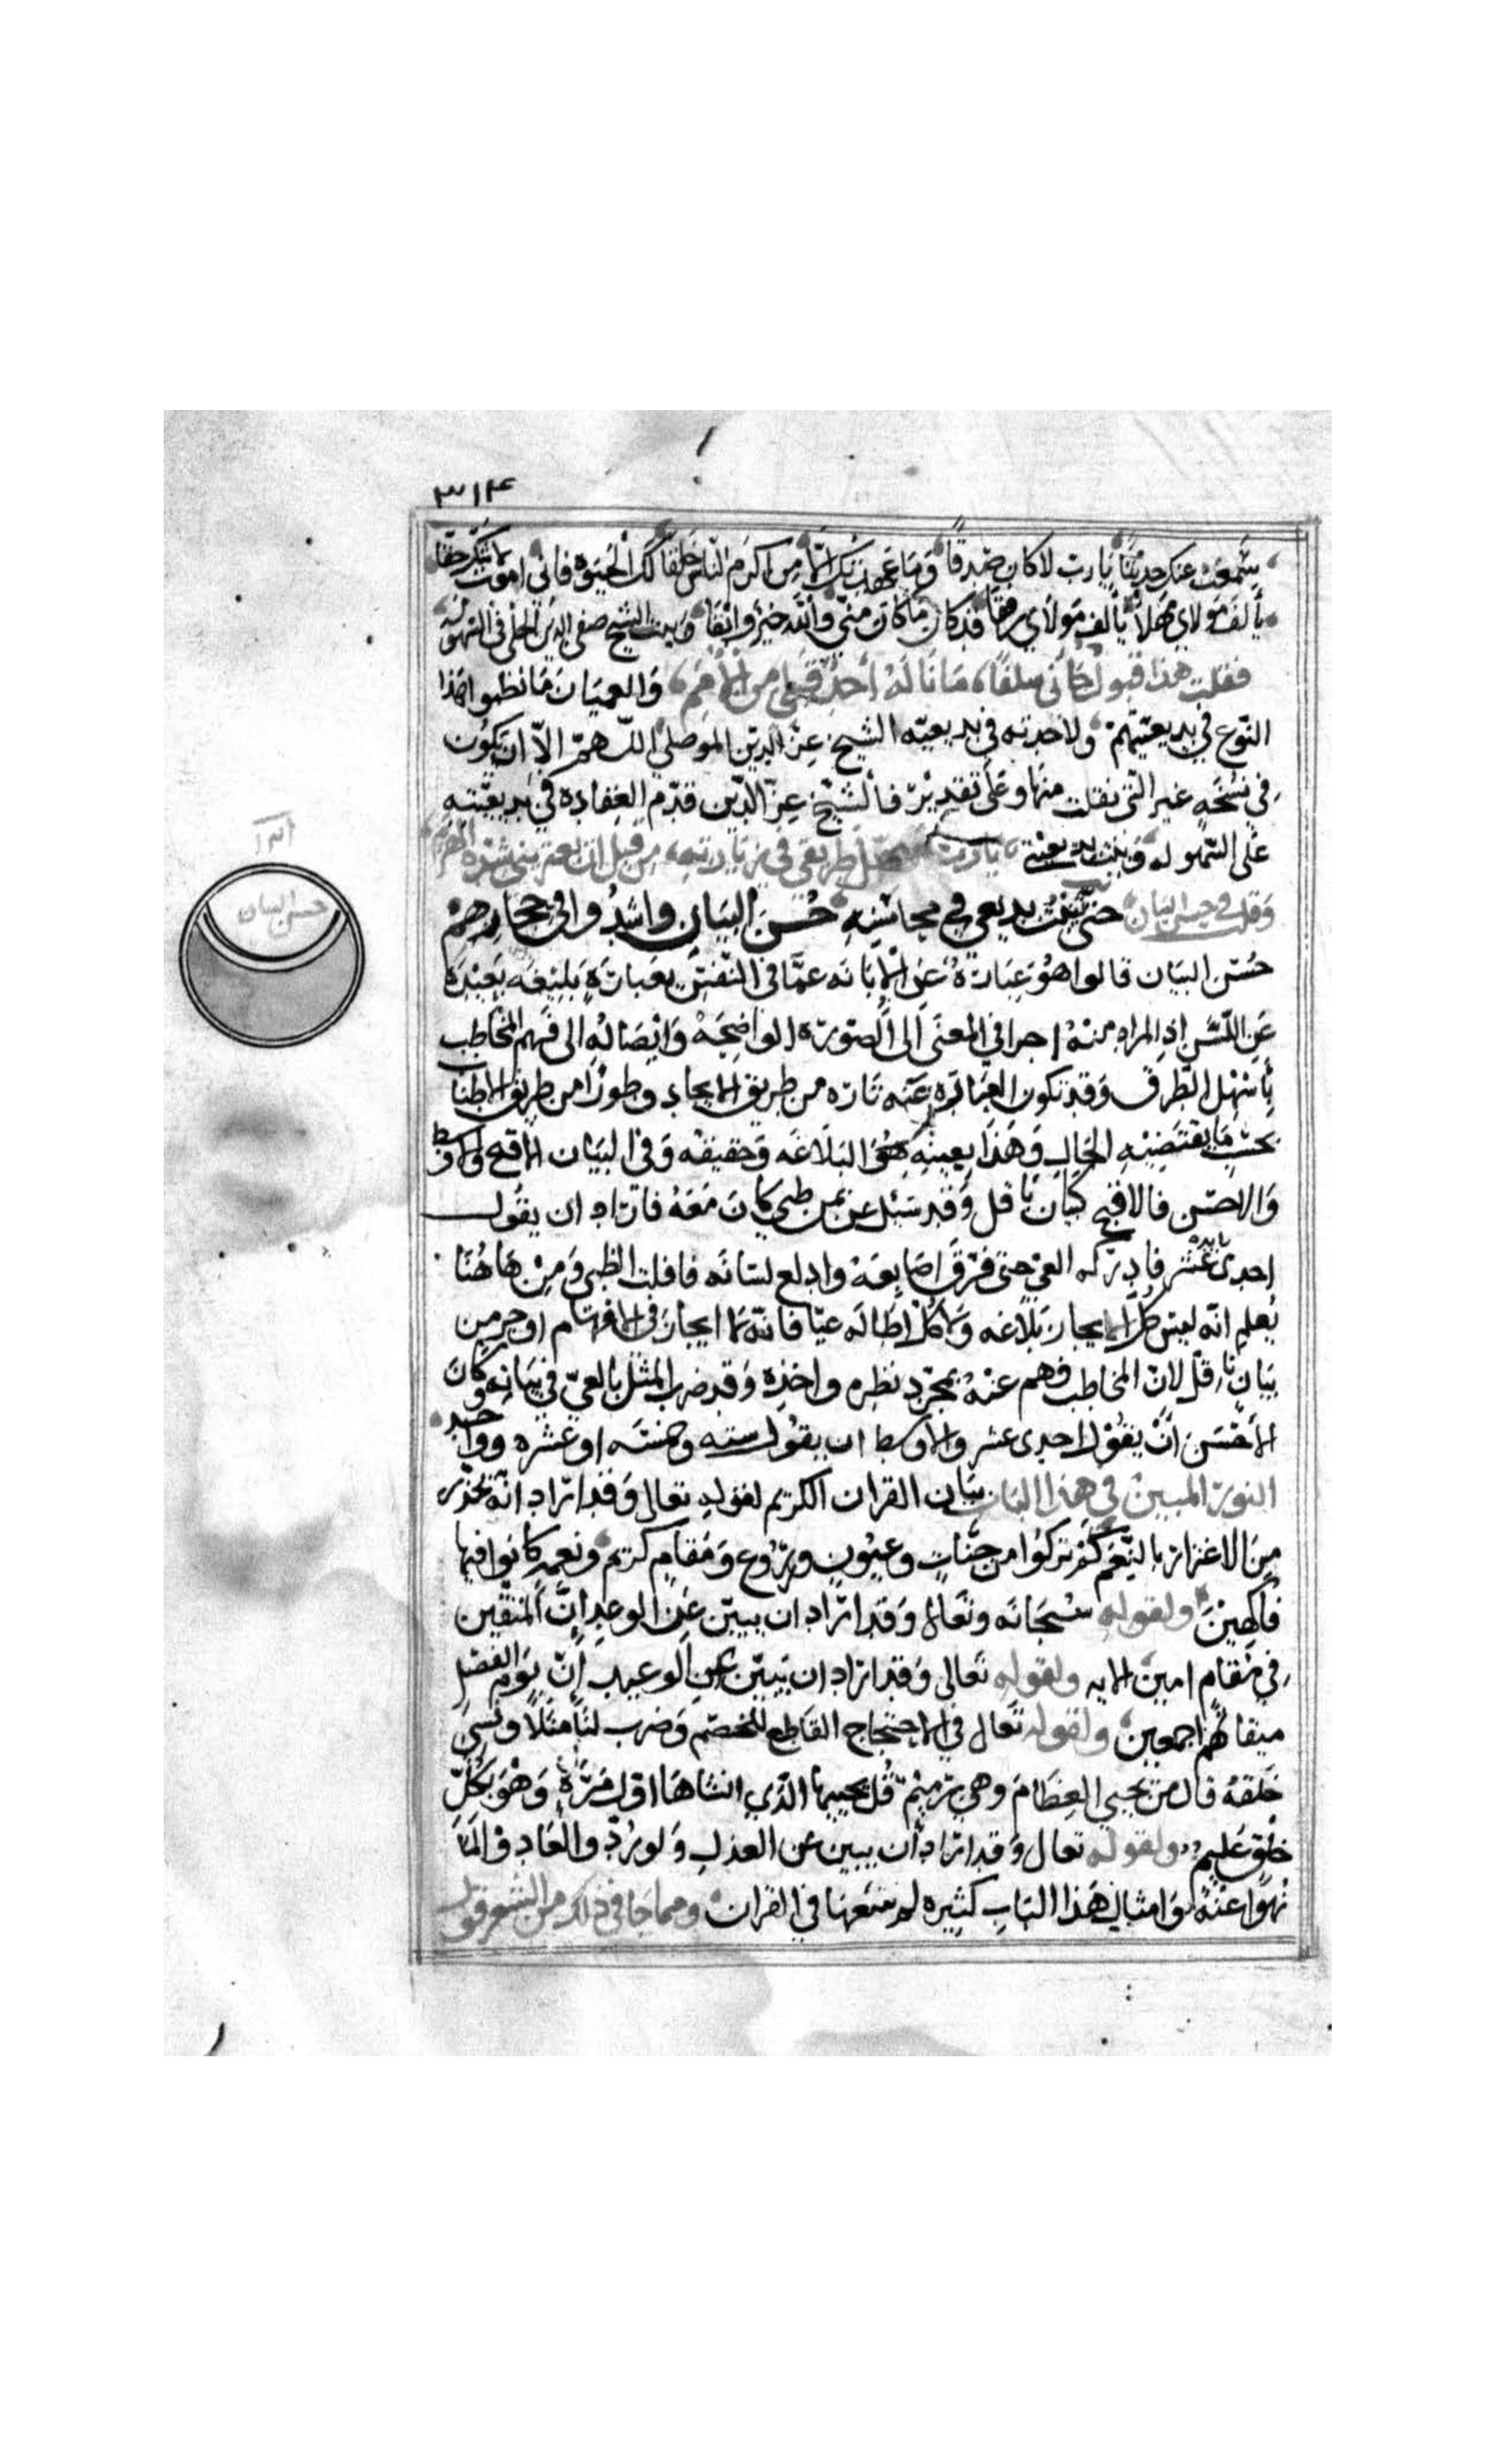 ٣١٤
سمعت عنك حديثا يا رب لا كان صدقا وما عهدتك الا من اكرم الناس خلقا لك الحيوة فاني اموت لا شك حقا
يا الف مولاي مهلا يا الف مولاي رفقا قد كان ما كان مني والله خير وابقا وبيت الشيخ صفي الدين الحلي في السهولة
فقلت هذا قبول جاني سلفا ما ناله احد قبلي من الامم والعميان ما نظموا هذا
النوع في بديعيتهم ولا وجدته في بديعيه الشيخ عز الدين الموصلي اللهم الا ان يكون
في نسخه غير التي نقلت منها وعلى تقدير فالشيخ عز الدين قدم في بديعيته
على السهوله وبيت بديعيتي يا رب سهل طريقي في زيارته من قبل ان تعتريني شدة الهرم
وقلت في حسن البيان حتى بديعي في محاسنه حسن البيان واشدوا في حجازهم
حسن البيان قالوا هو عبارة عن الابانه عما في النفس بعبارة بليغه بعيدة
عن اللبس اذ المراد منه اخراج المعنى الى الصورة الواضحة وايصاله الى فهم المخاطب
باسهل الطرق وقد تكون العبارة عنه تارة من طريق الايجاز وطورا من طريق الاطناب
بحسب ما يقتضيه الحال وهذا بعينه هو البلاغه وحقيقه وفي البيان الاقبح والاوسط
والاحسن فالاقبح كبيان باقل وقد سئل عن ثمن ظبي كان معه فاراد ان يقول
احدى عشر فادركه العي حتى فرق اصابعه وادلع لسانه فافلت الظبي ومن هاهنا
يعلم انه ليس كل الايجاز بلاغه ولا كل اطاله عيا فانه لا ايجاز في الافهام اوجز من
بيان باقل لان المخاطب فهم عنه بمجرد نظره واحدة وقد ضرب المثل بالعي في بيانه وكان
الاحسن ان يقول احدى عشر والاوسط ان يقول سته وخمسه او عشره وواحد
النور المبين في هذا الباب بيان القران الكريم لقوله تعالى وقد اراد انه يحذر
من الاغترار بالنعم كم تركوا من جنات وعيون وزروع ومقام كريم ونعمه كانوا فيها
فاكهين ولقوله سبحانه وتعالى وقد اراد ان يبين عن الوعد ان المتقين
في مقام امين الايه ولقوله تعالى وقد اراد ان يبين عن الوعيد ان يوم الفصل
ميقاتهم اجمعين ولقوله تعالى في الاحتجاج القاطع للخصم وضرب لنا مثلا ونسي
خلقه قال من يحيي العظام وهي رميم قل يحييها الذي انشاها اول مرة وهو بكل
خلق عليم ولقوله تعالى وقد اراد ان يبين عن العدل ولو ردوا لعادوا لما
نهوا عنه وامثال هذا الباب كثيره في القران ومما جا في ذلك من الشعر قول
حسن البيان